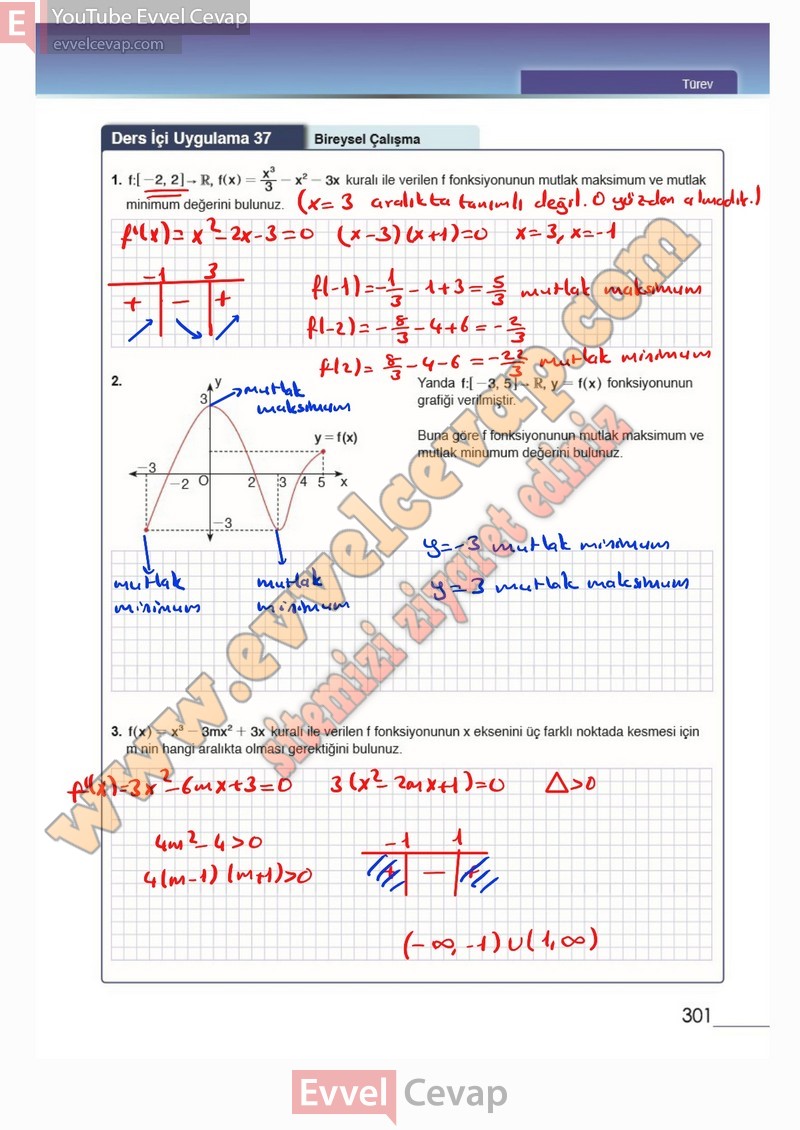 E YouTube Evvel Cevap
evvelcevap.com
Türev
Ders İçi Uygulama 37 Bireysel Çalışma
1. f:[ −2, 2]→ ℝ, f(x) = x³/3 − x² − 3x kuralı ile verilen f fonksiyonunun mutlak maksimum ve mutlak
minimum değerini bulunuz. (x=3 aralıkta tanımlı değil. O yüzden alınmadı.)
f'(x)= x²-2x-3=0 (x-3)(x+1)=0 x=3, x=-1
-1 3
+ - +
f(-1)=-1/3-1+3=5/3 mutlak maksimum
f(-2)=-8/3-4+6=-2/3
f(2)=8/3-4-6=-22/3 mutlak minimum
2.
Yanda f:[ −3, 5]→ ℝ, y = f(x) fonksiyonunun
grafiği verilmiştir.
Buna göre f fonksiyonunun mutlak maksimum ve
mutlak minumum değerini bulunuz.
y
3
mutlak
maksimum
y = f(x)
−3 −2 O 2 3 4 5 x
−3
mutlak
minimum
mutlak
minimum
y=-3 mutlak minimum
y=3 mutlak maksimum
3. f(x) = x³ − 3mx² + 3x kuralı ile verilen f fonksiyonunun x eksenini üç farklı noktada kesmesi için
m nin hangi aralıkta olması gerektiğini bulunuz.
f'(x)=3x²-6mx+3=0 3(x²-2mx+1)=0 Δ>0
4m²-4>0
4(m-1)(m+1)>0
-1 1
+ - +
(-∞,-1)∪(1,∞)
www.evvelcevap.com
sitemizi ziyaret ediniz
301
Evvel Cevap